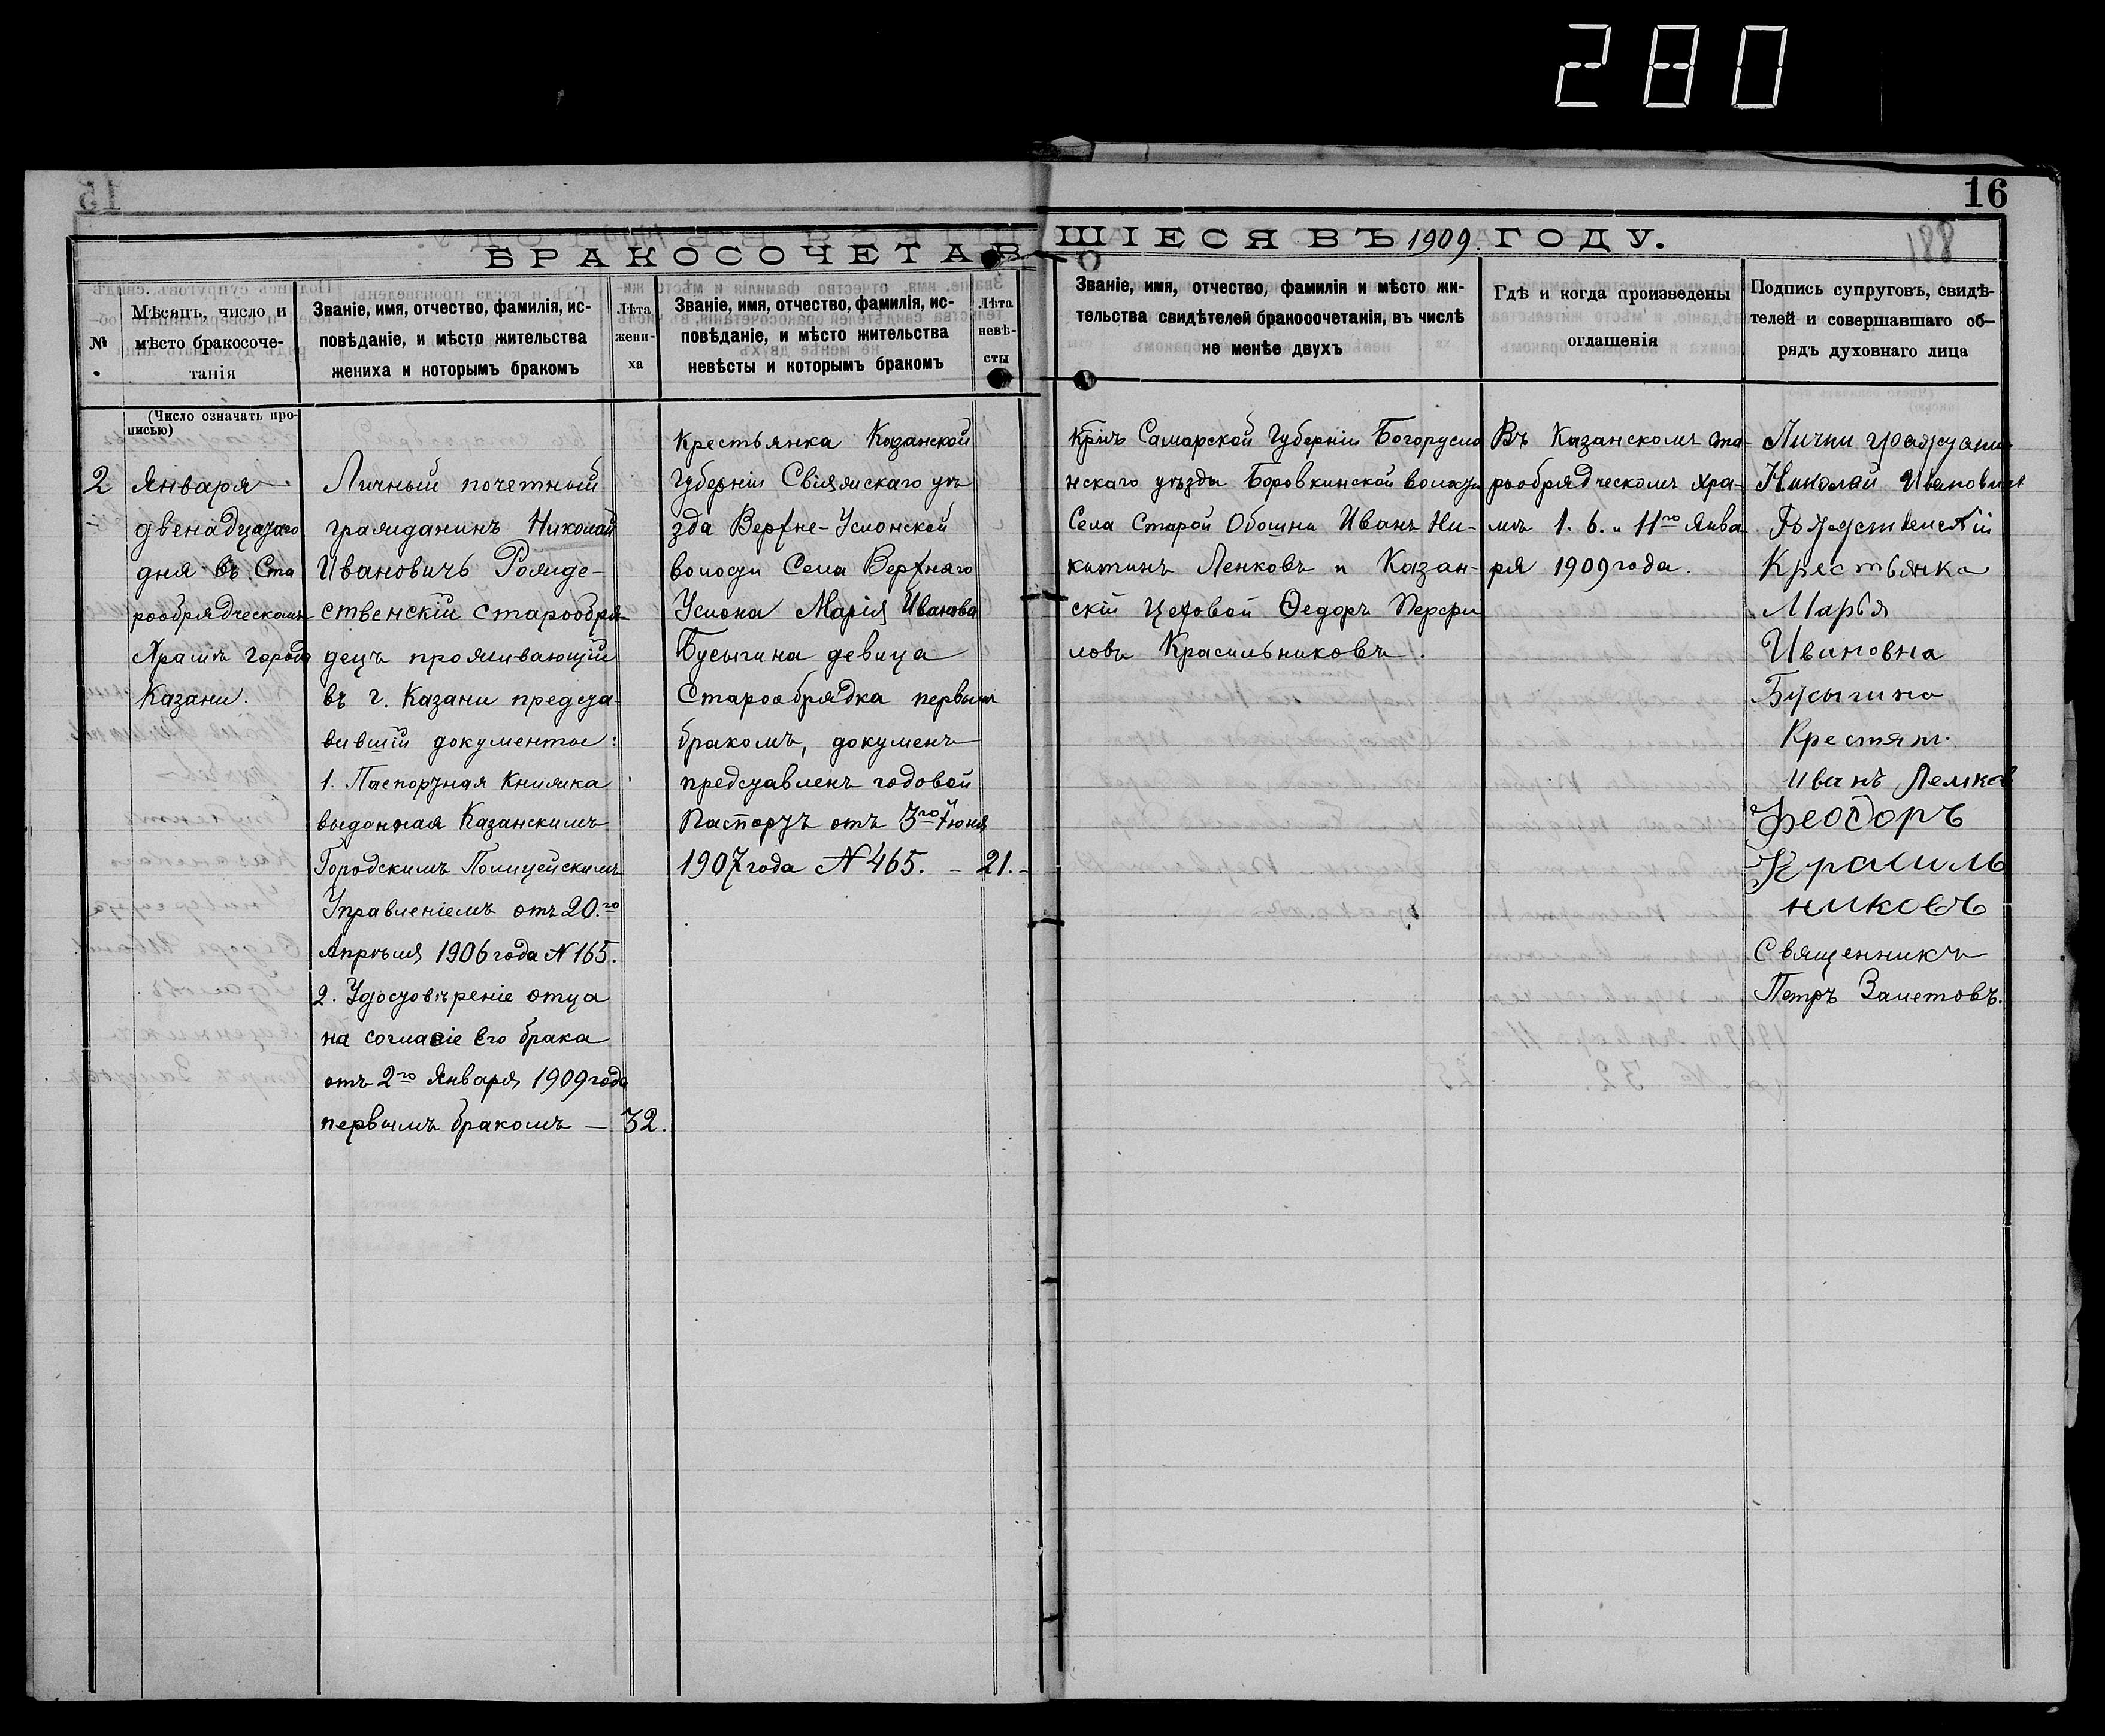 280
16
БРАКОСОЧЕТАВШІЕСЯ ВЪ 1909 ГОДУ.
№
Мѣсяцъ, число и
мѣсто бракосоче-
танія
Званіе, имя, отчество, фамилія, ис-
повѣданіе, и мѣсто жительства
жениха и которымъ бракомъ
Лѣта
жени-
ха
Званіе, имя, отчество, фамилія, ис-
повѣданіе, и мѣсто жительства
невѣсты и которымъ бракомъ
Лѣта
невѣ-
сты
Званіе, имя, отчество, фамилія и мѣсто жи-
тельства свидѣтелей бракосочетанія, въ числѣ
не менѣе двухъ
Гдѣ и когда произведены
оглашенія
Подпись супруговъ, свидѣ-
телей и совершавшаго об-
рядъ духовнаго лица
(Число означать про-
писью)
2
Января
двенадцатаго
дня въ Ста
рообрядческомъ
Храмѣ города
Казани.
Личный почетный
гражданинъ Николай
Ивановичъ Рожде-
ственскій старообря-
децъ проживающій
въ г. Казани предста-
вившій документы:
1. Паспортная Книжка
выданная Казанскимъ
Городскимъ Полицейскимъ
Управленіемъ отъ 20.го
Апрѣля 1906 года N 165.
2. Удостовѣреніе отца
на согласіе его брака
отъ 2го Января 1909 года
первымъ бракомъ — 32.
Крестьянка Казанской
Губерніи Свіяжскаго уѣ
зда Верхне-Услонской
волости Села Верхняго
Услона Марія Иванова
Бусыгина девица
Старообрядка первымъ
бракомъ, докуменъ
представленъ годовой
Паспортъ отъ 3го Іюня
1907 года N 465. – 21.–
Кр̃нъ Самарской Губерніи Богорусла
нскаго уѣзда Боровкинской волости
Села Старой Иванъ Ни-
китинъ Ленковъ и Казан-
скій Цеховой Ѳедоръ Перфи
ловъ Красильниковъ.
Въ Казанскомъ ста-
рообрядческомъ хра-
мѣ 1. 6. и 11го Янва
ря 1909 года.
Личны гражданин
Николай Ивановичъ
Рождественскій
Крестьянка
Марья
Ивановна
Бусыгина
Крестян.
Иванъ
Феодоръ
Красиль
никовъ
Священникъ
Петръ Залетовъ.